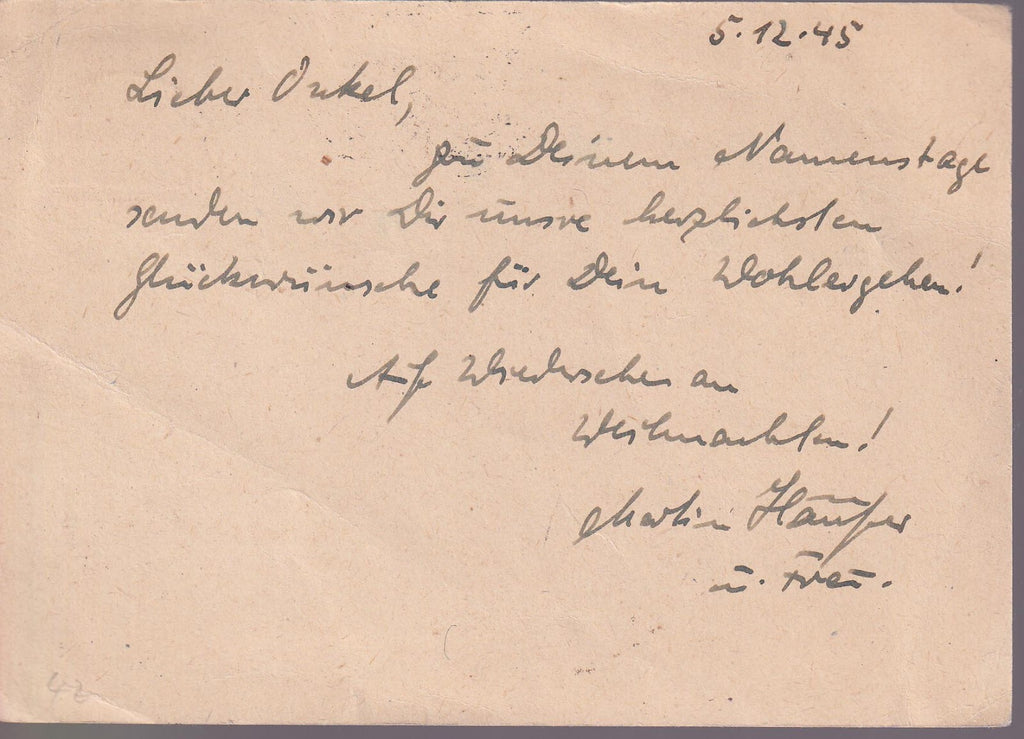 5.12.45
Lieber Onkel,
zu Deinem Namenstage
senden wir Dir unsre herzlichsten
Glückwünsche für Dein Wohlergehen!
Auf Wiedersehen an
Weihnachten!
Martin
u. Frau.
42